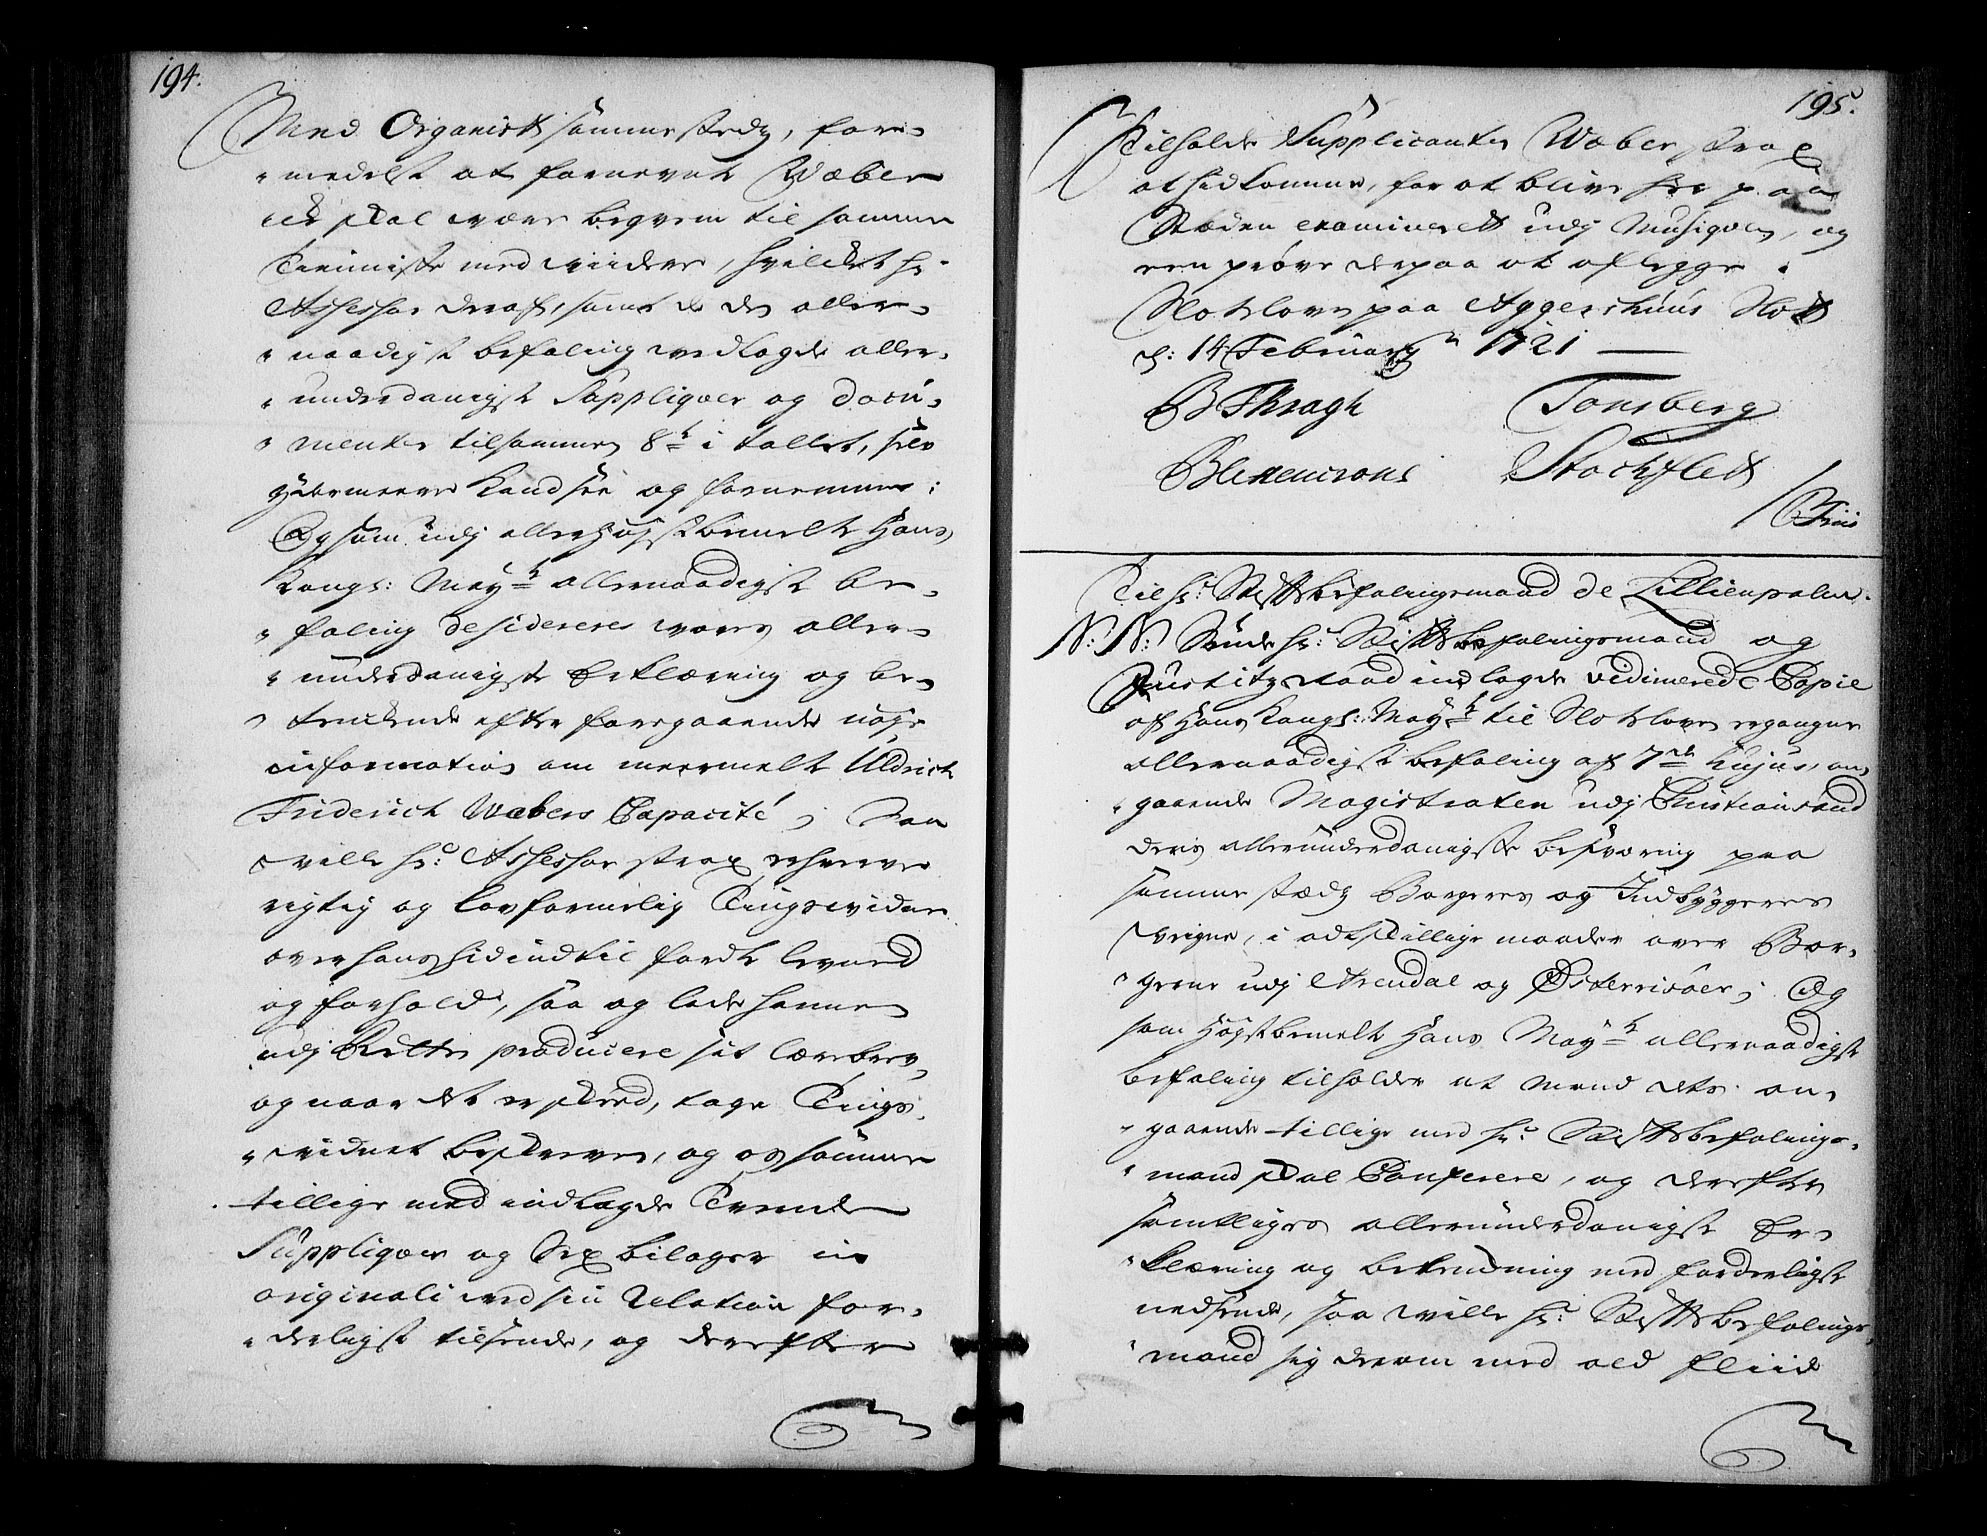 194.
Med Organist sammestedz, for-
medelst at fornevnte Wæber
ei skal være beqvem til samme
Tieniste med viidere, hvilcket hr.
Assessor deraf, samt de des aller-
naadigst befaling vedlagde aller-
underdanigst Suppliqver og docu-
menter tilsammen 8te i tallet,
nermeere kand see og fornemme;
Og som udj allerhøystbemelte Hans
Kongl: Mayts allernaadigste be-
faling desidereres vores aller-
underdanigste Erklæring og be-
tenckende efter foregaaende nøye
information om meermelte Uldrich
Friderich Wæbers Capacité, Saa
ville hr. Assessor strax erhverve
rigtig og lovformelig Tingsvidne
over hans hidindtil førdte levned
og forhold, saa og lade hannem
udj Retten producere sit lærebrev,
og naar det er skeed, tage Tings-
vidnet beskreven, og os samme
tillige med indlagde Tvende
Suppliqver og Sex bilager in
originali med sin Relation for-
derligst tilsende, og derefter
195.
Tilholde Supplicanten Wæber strax
at hidkomme, for at blive her paa
Stæden examineret udj Musiqven, og
een prøve derpaa at aflegge.
Slotsloven paa Aggershuus Slott
d: 14 February 1721
B Skragh Tonsberg
Blixencrons Stochflett
/ CFriis
Til hr: Stiftsbefalingsmand de Lillienpalm.
N: N: Sende hr: Stiftsbefalingsmand og
Justitzraad indlagde vidimerede Copie
af Hans Kongl: Mayts til Slotsloven ergangne
allernaadigst befaling af 7de hujus, an-
gaaende Magistraten udj Christiansand
deris allerunderdanigste besværing paa
samme stædz Borgeres og Indbyggeres
vegne, i adskillige maader over Bor-
gerne udj Arendal og Østerrisøer; Og
som Høystbemelte Hans Mayts allernaadigst
befaling tilholder at mand dets an-
gaaende tillige med hr: Stiftsbefalings-
mand skal Conferere, og derefter
samtliges allerunderdanigst Er-
klæring og betenckning med forderligst
nedsende, saa ville hr: Stiftsbefalings-
mand sig derom med ald fliid